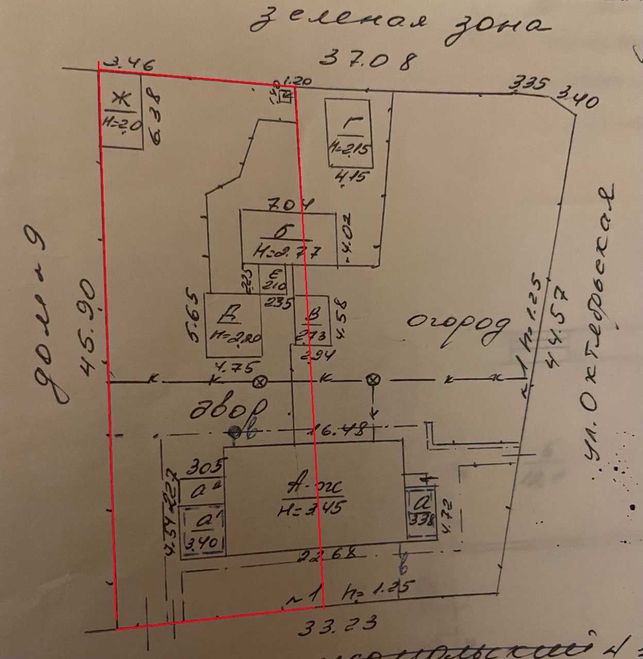 зеленая зона
37.08
3.46
1.20
335
3.40
Ж
H=2.0
6.38
Г
H=2.15
4.15
7.04
Б
H=2.77
4.02
Е
2.10
2.35
5.65
Д
H=2.20
4.75
В
2.73
4.58
2.94
огород
дом 9
45.90
~1 h=1.25
44.57
ул. Октябрьская
к к к к к
двор
16.48
305
а"
4.54
2.27
а'
3.40
А-ж
H=3.45
а
338
4.72
22.68
~1 h=1.25
33.23